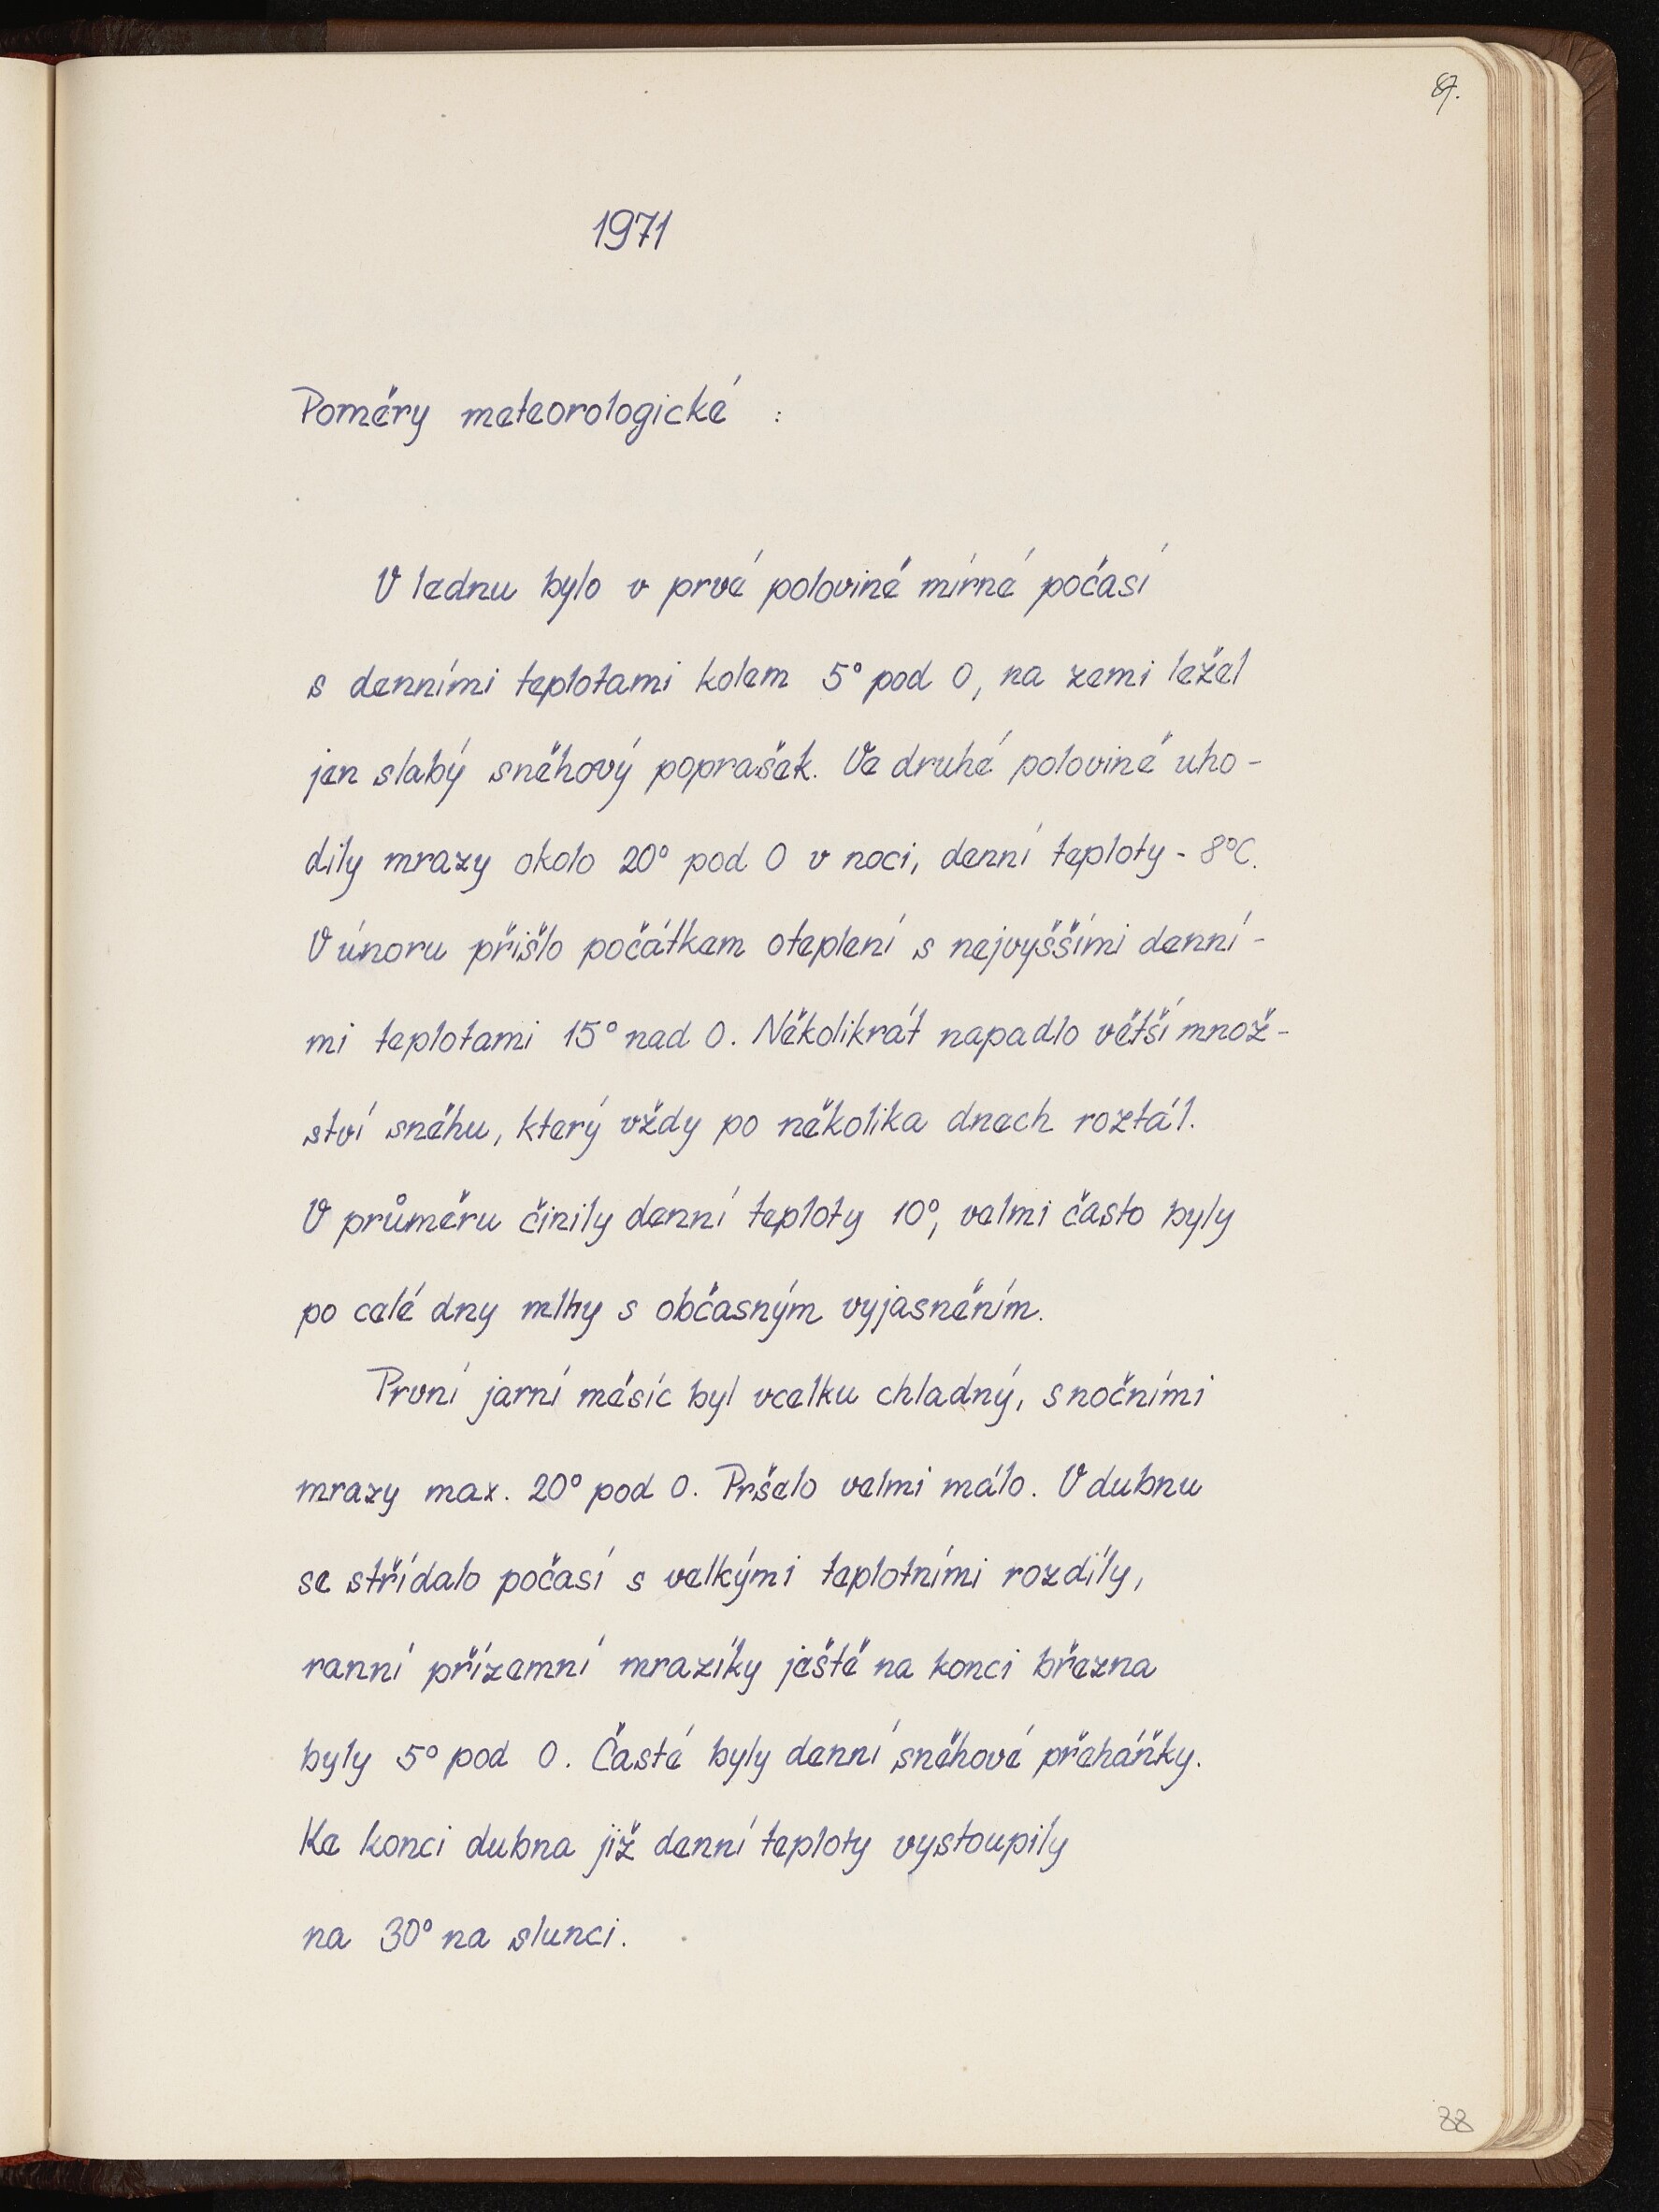 87.
1971
Poměry meteorologické :
V lednu bylo v prvé polovině mírné počasí
s denními teplotami kolem 5° pod 0, na zemi ležel
jen slabý sněhový poprašek. Ve druhé polovině uho-
dily mrazy okolo 20° pod 0 v noci, denní teploty - 8°C.
V únoru přišlo počátkem oteplení s nejvyššími denní-
mi teplotami 15° nad 0. Několikrát napadlo větší množ-
ství sněhu, který vždy po několika dnech roztál.
V průměru činily denní teploty 10°, velmi často byly
po celé dny mlhy s občasným vyjasněním.
První jarní měsíc byl vcelku chladný, s nočními
mrazy max. 20° pod 0. Pršelo velmi málo. V dubnu
se střídalo počasí s velkými teplotními rozdíly,
ranní přízemní mrazíky ještě na konci března
byly 5° pod 0. Časté byly denní sněhové přeháňky.
Ke konci dubna již denní teploty vystoupily
na 30° na slunci.
88